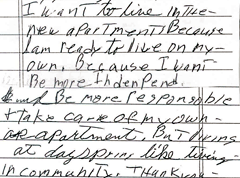 I want to live in the
new apartments Because
I am ready to live on my
own. Because I want
Be more Independend.
and Be more responsible
+ take care of my own
apartment. But living
at dayspring like living
in community. Thank you